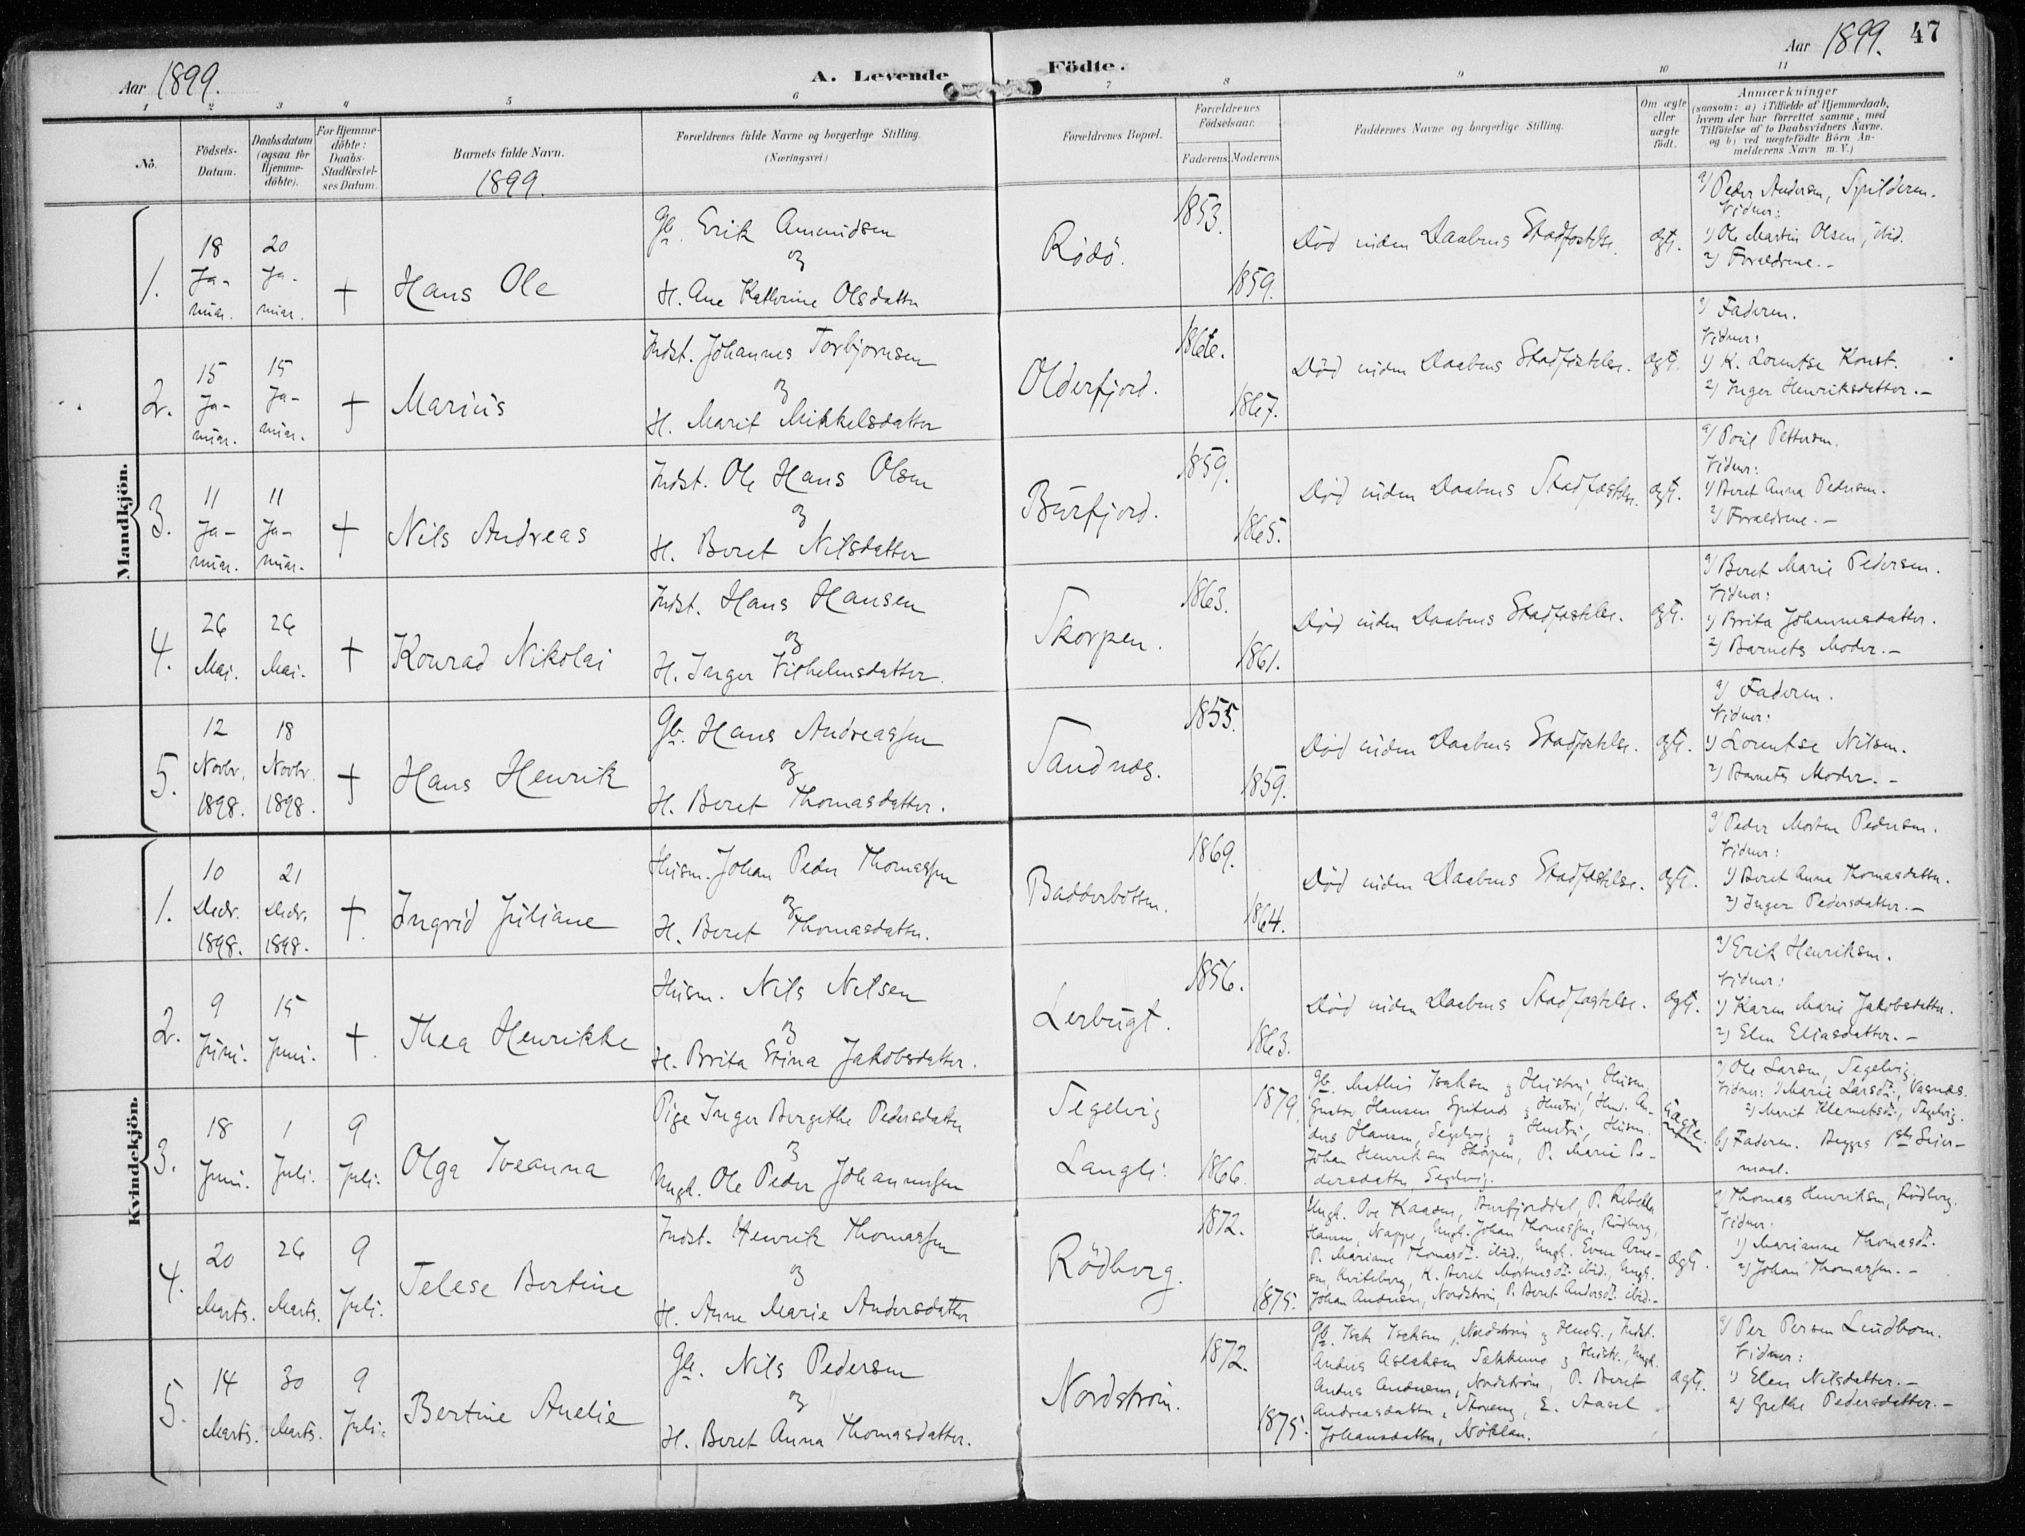 Aar 1899.
A. Levende Födte.
Aar 1899. 47
1 2 3 4 5 6 7 8 9 10 11
No.
Födsels-
Datum.
Daabsdatum
(ogsaa for
Hjemme-
döbte).
For Hjemme-
döbte:
Daabs-
Stadfæstel-
ses Datum.
Barnets fulde Navn.
1899.
Forældrenes fulde Navne og borgerlige Stilling.
(Næringsvei)
Forældrenes Bopæl.
Forældrenes
Födselsaar.
Faderens. Moderens.
Faddernes Navne og borgerlige Stilling.
Om ægte
eller
uægte
födt.
Anmærkninger
(saasom: a) i Tilfælde af Hjemmedaab,
hvem der har forrettet samme, med
Tilföielse af to Daabsvidners Navne.
og b) ved uægtefödte Börn An-
melderens Navn m. V.)
Mandkjön.
1.
18
Ja-
nuar.
20
Ja-
nuar.
+
Hans Ole
Gb. Erik Amundsen
og
H. Ane Kathrine Olsdatter
Rödö.
1853.
1859.
Död inden Daabens Stadfæstelse.
ægt.
a) Peder Andersen, Spilderen.
Vidner:
1) Ole Martin Olsen, ibid.
2) Forældrene.-
2.
15
Ja-
nuar.
15
Ja-
nuar.
+
Marius
Indst. Johannes Torbjornsen
og
H. Marit Mikkelsdatter
Olderfjord.
1866.
1867.
Död inden Daabens Stadfæstelse.
ægt.
a) Faderen.
Vidner:
1) K. Lorentse Konst.
2) Inger Henriksdatter.-
3.
11
Ja-
nuar.
11
Ja-
nuar.
+
Nils Andreas
Indst. Ole Hans Olsen
og
H. Beret Nilsdatter
Burfjord.
1859.
1865.
Död inden Daabens Stadfæstelse.
ægt.
a) Poul Pettersen.
Vidner:
1) Beret Anna Pedersen.
2) Forældrene.-
4.
26
Mai.
26
Mai.
+
Konrad Nikolai
Indst. Hans Hansen
og
H. Inger Vilhelmsdatter.
Skorpen.
1863.
1861.
Död inden Daabens Stadfæstelse.
ægt.
a) Beret Marie Pedersen.
Vidner:
1) Brita Johannesdatter.
2) Barnets Moder.-
5.
12
Novbr.
1898.
18
Novbr.
1898.
+
Hans Henrik
Gb. Hans Andreassen
og
H. Beret Thomasdatter.
Sandnæs.
1855.
1859.
Död inden Daabens Stadfæstelse.
ægt.
a) Faderen.
Vidner:
1) Lorentse Nilsen.
2) Barnets Moder.-
Kvindekjön.
1.
10
Decbr.
1898.
21
Decbr.
1898.
+
Ingrid Juliane
Husm. Johan Peder Thomassen
og
H. Beret Thomasdatter.
Badderbotten.
1869.
1864.
Död inden Daabens Stadfæstelse.
ægt.
a) Peder Morten Pedersen.
Vidner:
1) Beret Anna Thomasdatter.
2) Inger Pedersdatter.-
2.
9
Juni.
15
Juni.
+
Thea Henrikke
Husm. Nils Nilsen
og
H. Brita Stina Jakobsdatter.
Lerbugt.
1856.
1863.
Död inden Daabens Stadfæstelse.
ægt.
a) Erik Henriksen.
Vidner:
1) Karen Marie Jakobsdatter.
2) Elen Eliasdatter.-
3.
18
Juni.
1
Juli.
9
Juli.
Olga Iveanna
Pige Inger Bergithe Pedersdatter
og
Ungk. Ole Peder Johannessen
Segelvig
Langli:
1879.
1866.
Gb. Mathis Isaksen og Hustru, Husm.
Gustav Hansen og Hustru, An-
ders Hansen, Segelvig og Hustru, Husm.
Johan Henriksen Skorpen, P. Marie Pe-
dersdatter, Segelvig.
Uægte.
a) Ole Larsen, Segelvig.
Vidner: 1) Marie Larsdr., Vasnæs.
2) Marit Klemetsdr., Segelvig.
b) Faderen. Begges 1ste Leier-
maal.
4.
20
Marts.
26
Marts.
9
Juli.
Telese Bertine
Indst. Henrik Thomassen
og
H. Anne Marie Andersdatter
Rödberg.
1872.
1875.
Ungk. Ove Kaasen, Burfjorddal, P. Rebekka
Hansen, Nappe, Ungk. Johan Thomassen, Rödberg,
P. Mariane Thomasdr. ibid., Ungk. Even Arne-
sen, Kviteberg, K. Beret Mortensdr. ibid., Ungk.
Johan Andersen, Nordström, P. Beret Andersdr. ibid.-
ægt.
a) Thomas Henriksen, Rödberg.
Vidner:
1) Marianne Thomasdr.
2) Johan Thomassen.-
5.
14
Marts.
30
Marts.
9
Juli.
Bertine Anelie
Gb. Nils Pedersen
og
H. Beret Anna Thomasdatter.
Nordström.
1872.
1875.
Gb. Isak Isaksen, Nordström og Hustr., Indst.
Anders Aslaksen og Hustr., Ungk.
Anders Andersen, Nordström, P. Beret
Andreasdatter, E. Aasel
Johansdatter, Nöklan.
ægt.
a) Per Persen Lindbom.
Vidner:
1) Elen Nilsdatter.-
2) Grethe Pedersdatter.-